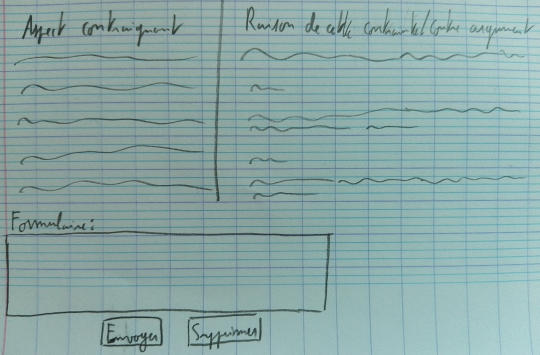 Aspect contraignant
Raison de cette contrainte/contre argument
Formulaire:
Envoyer
Supprimer